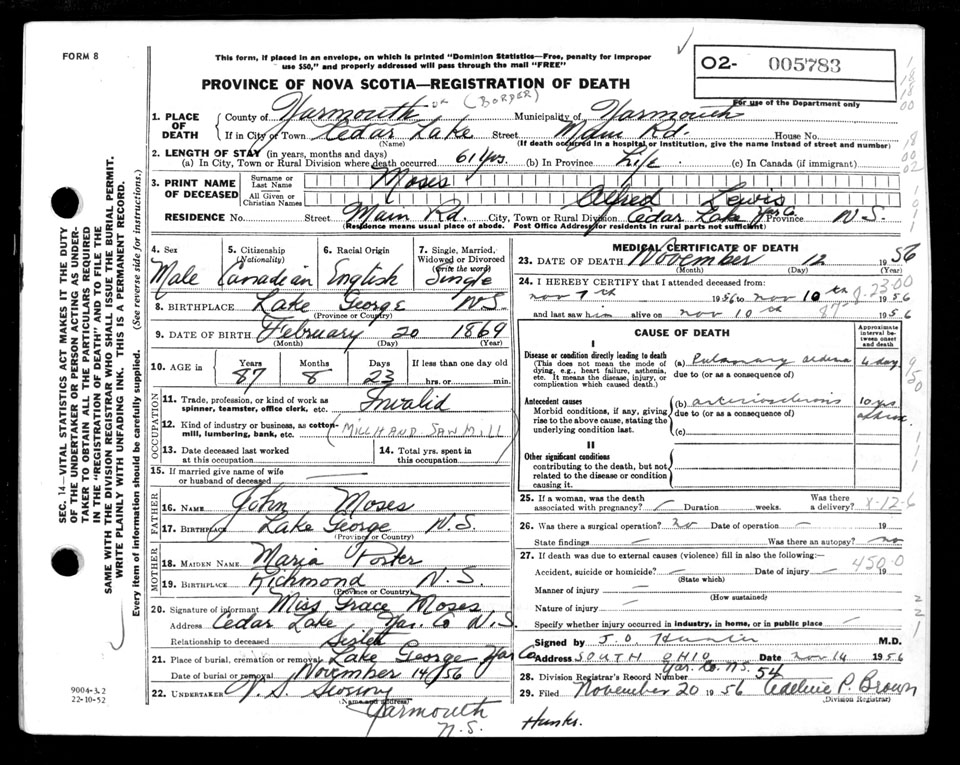 FORM 8
This form, if placed in an envelope, on which is printed "Dominion Statistics—Free, penalty for improper
use $50," and properly addressed will pass through the mail "FREE"
O2- 005783
For use of the Department only
PROVINCE OF NOVA SCOTIA—REGISTRATION OF DEATH
(BORDER)
1. PLACE OF DEATH
County of Yarmouth Municipality of Yarmouth
If in City or Town Cedar Lake Street Main Rd. House No.
(Name) (If death occurred in a hospital or institution, give the name instead of street and number)
2. LENGTH OF STAY (in years, months and days)
(a) In City, Town or Rural Division where death occurred 61 Yrs. (b) In Province Life. (c) In Canada (if immigrant)
3. PRINT NAME OF DECEASED
Surname or Last Name Moses
All Given or Christian Names Alfred Lewis
RESIDENCE No. Street Main Rd. City, Town or Rural Division Cedar Lake Yar Co Province N.S.
(Residence means usual place of abode. Post Office Address for residents in rural parts not sufficient)
4. Sex Male
5. Citizenship (Nationality) Canadian
6. Racial Origin English
7. Single, Married, Widowed or Divorced (Write the word) Single
8. BIRTHPLACE Lake George N.S.
(Province or Country)
9. DATE OF BIRTH February 20 1869
(Month) (Day) (Year)
10. AGE in Years 87 Months 8 Days 23 If less than one day old
hrs. or min.
OCCUPATION
11. Trade, profession, or kind of work as
spinner, teamster, office clerk, etc. Invalid
12. Kind of industry or business, as cotton-
mill, lumbering, bank, etc. (MILLHAND SAW MILL)
13. Date deceased last worked
at this occupation
14. Total yrs. spent in
this occupation
15. If married give name of wife
or husband of deceased
FATHER
16. NAME John Moses
17. BIRTHPLACE Lake George N.S.
(Province or Country)
MOTHER
18. MAIDEN NAME Maria Porter
19. BIRTHPLACE Richmond N.S.
(Province or Country)
20. Signature of informant Miss Grace Moses
Address Cedar Lake, Yar. Co N.S.
Relationship to deceased
21. Place of burial, cremation or removal Lake George Yar Co
Date of burial or removal November 14/56
22. UNDERTAKER V. S.
(Name and address)
Yarmouth
N.S.
MEDICAL CERTIFICATE OF DEATH
23. DATE OF DEATH November 12 1956
(Month) (Day) (Year)
24. I HEREBY CERTIFY that I attended deceased from:
nov 7th 1956 to nov 10th 1956
and last saw him alive on nov 10th 1956
CAUSE OF DEATH
Approximate interval between onset and death
I
Disease or condition directly leading to death
(This does not mean the mode of dying, e.g., heart failure, asthenia, etc. It means the disease, injury, or complication which caused death.)
(a) Pulmonary edema 4 day
due to (or as a consequence of)
Antecedent causes
Morbid conditions, if any, giving rise to the above cause, stating the underlying condition last.
(b) arteriosclerosis 10 yrs
due to (or as a consequence of)
(c)
II
Other significant conditions
contributing to the death, but not related to the disease or condition causing it.
25. If a woman, was the death
associated with pregnancy? — Duration weeks. Was there a delivery?
X-12-6
26. Was there a surgical operation? no Date of operation — 19
State findings — Was there an autopsy? no
27. If death was due to external causes (violence) fill in also the following:—
4500
Accident, suicide or homicide? — Date of injury — 19
(State which)
Manner of injury
(How sustained)
Nature of injury —
Specify whether injury occurred in industry, in home, or in public place
Signed by J. O. Hunter M.D.
Address SOUTH OHIO Date Nov 14 1956
Yar. Co. N.S.
28. Division Registrar's Record Number 54
29. Filed November 20 1956 Adeline P. Brown
(Division Registrar)
SEC. 14—VITAL STATISTICS ACT MAKES IT THE DUTY
OF THE UNDERTAKER OR PERSON ACTING AS UNDER-
TAKER TO OBTAIN ALL THE PARTICULARS REQUIRED
IN THE "REGISTRATION OF DEATH" AND TO FILE THE
SAME WITH THE DIVISION REGISTRAR WHO SHALL ISSUE THE BURIAL PERMIT.
WRITE PLAINLY WITH UNFADING INK. THIS IS A PERMANENT RECORD.
Every item of information should be carefully supplied. (See reverse side for instructions.)
9004-3.2
22-10-52